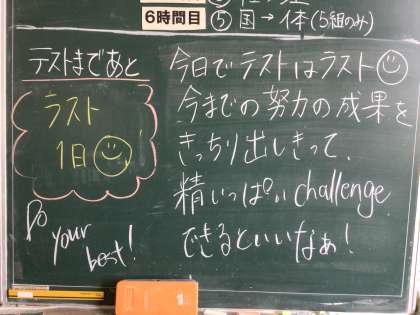 6時間目
⑤ 国→体(5組のみ)
テストまであと
ラスト
1日
Do
your
best!
今日でテストはラスト
今までの努力の成果を
きっちり出しきって、
精いっぱい challenge
できるといいなぁ!